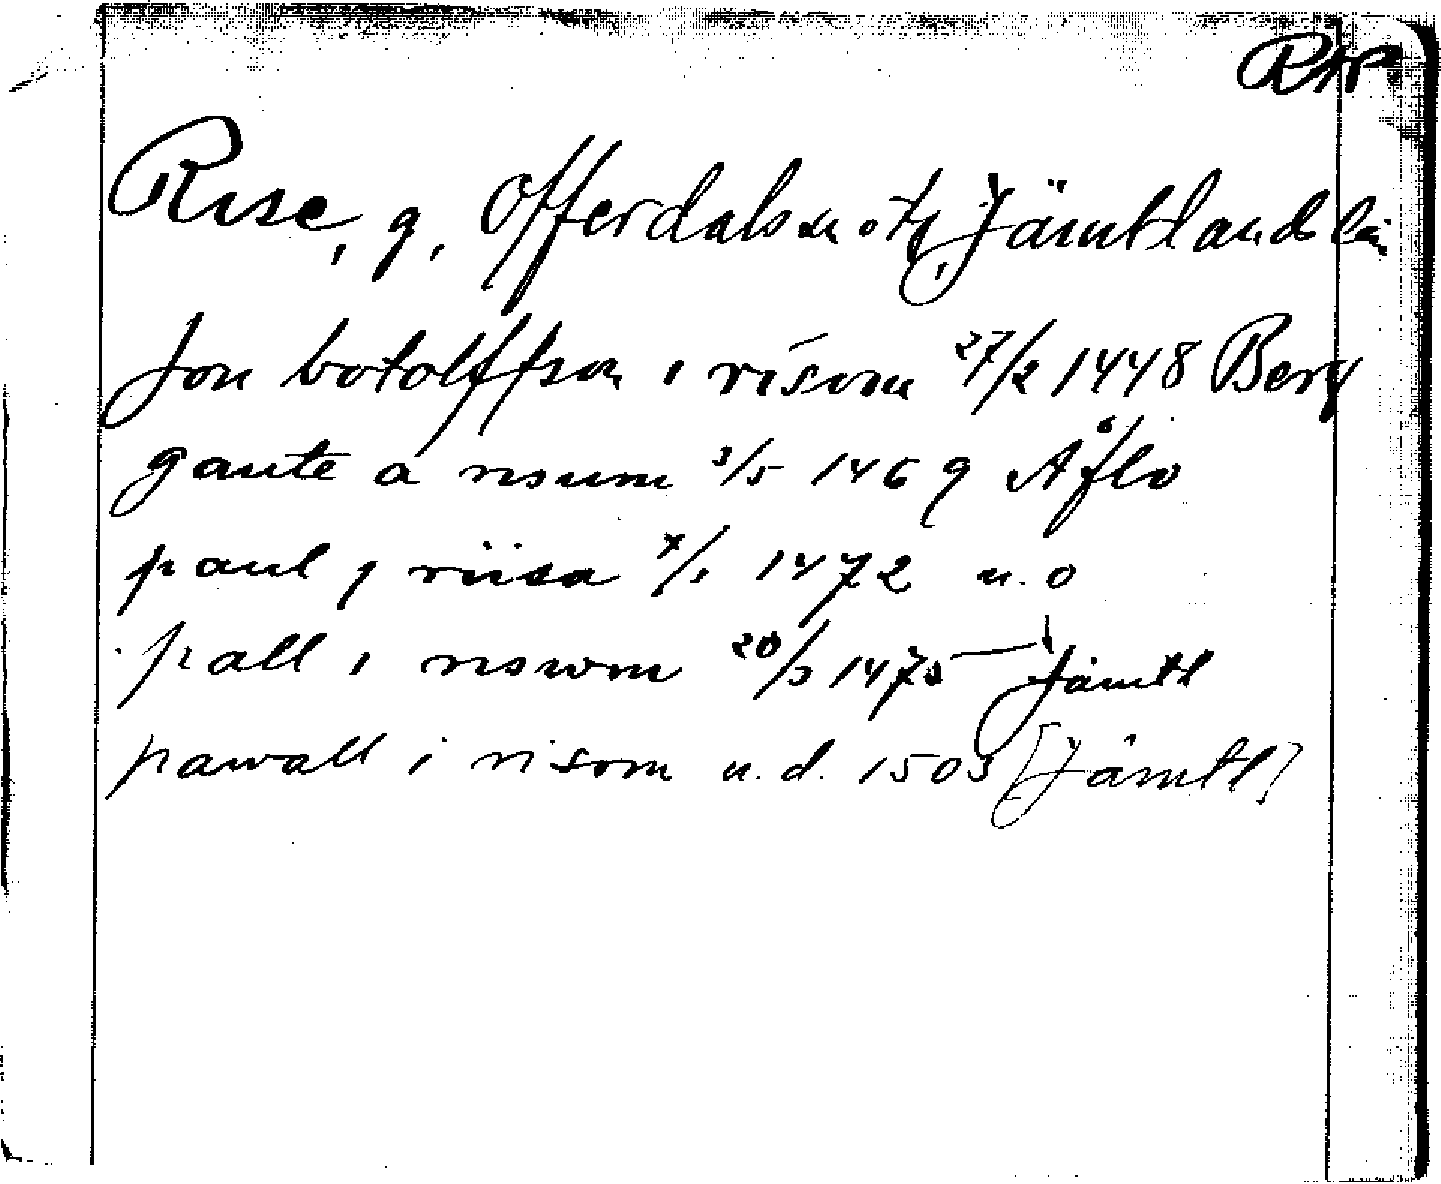 RAp
Rise, g, Offerdals sn o tg, Jämtlands län
Jon botolffson i risom 27/2 1448 Berg
gaute a risum 3/5 1469 Aflo
paul j riisa 7/1 1472 u.o
pall i riswm 20/3 1475 — Jämtl
pawall i risom u.d. 1503 [Jämtl]